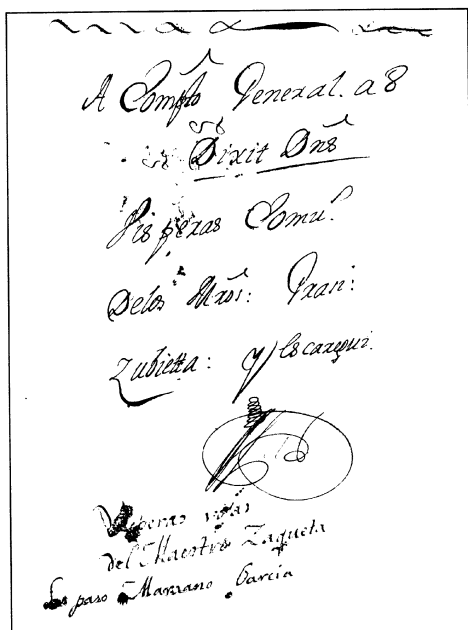 A Compto General. a 8
Dixit Dns
Visperas Comus.
Delos Mros: Prani:
Zubietta: y Escaregui.
Visperas viejas
del Maestro Zaqueta
las paso Mariano Garcia